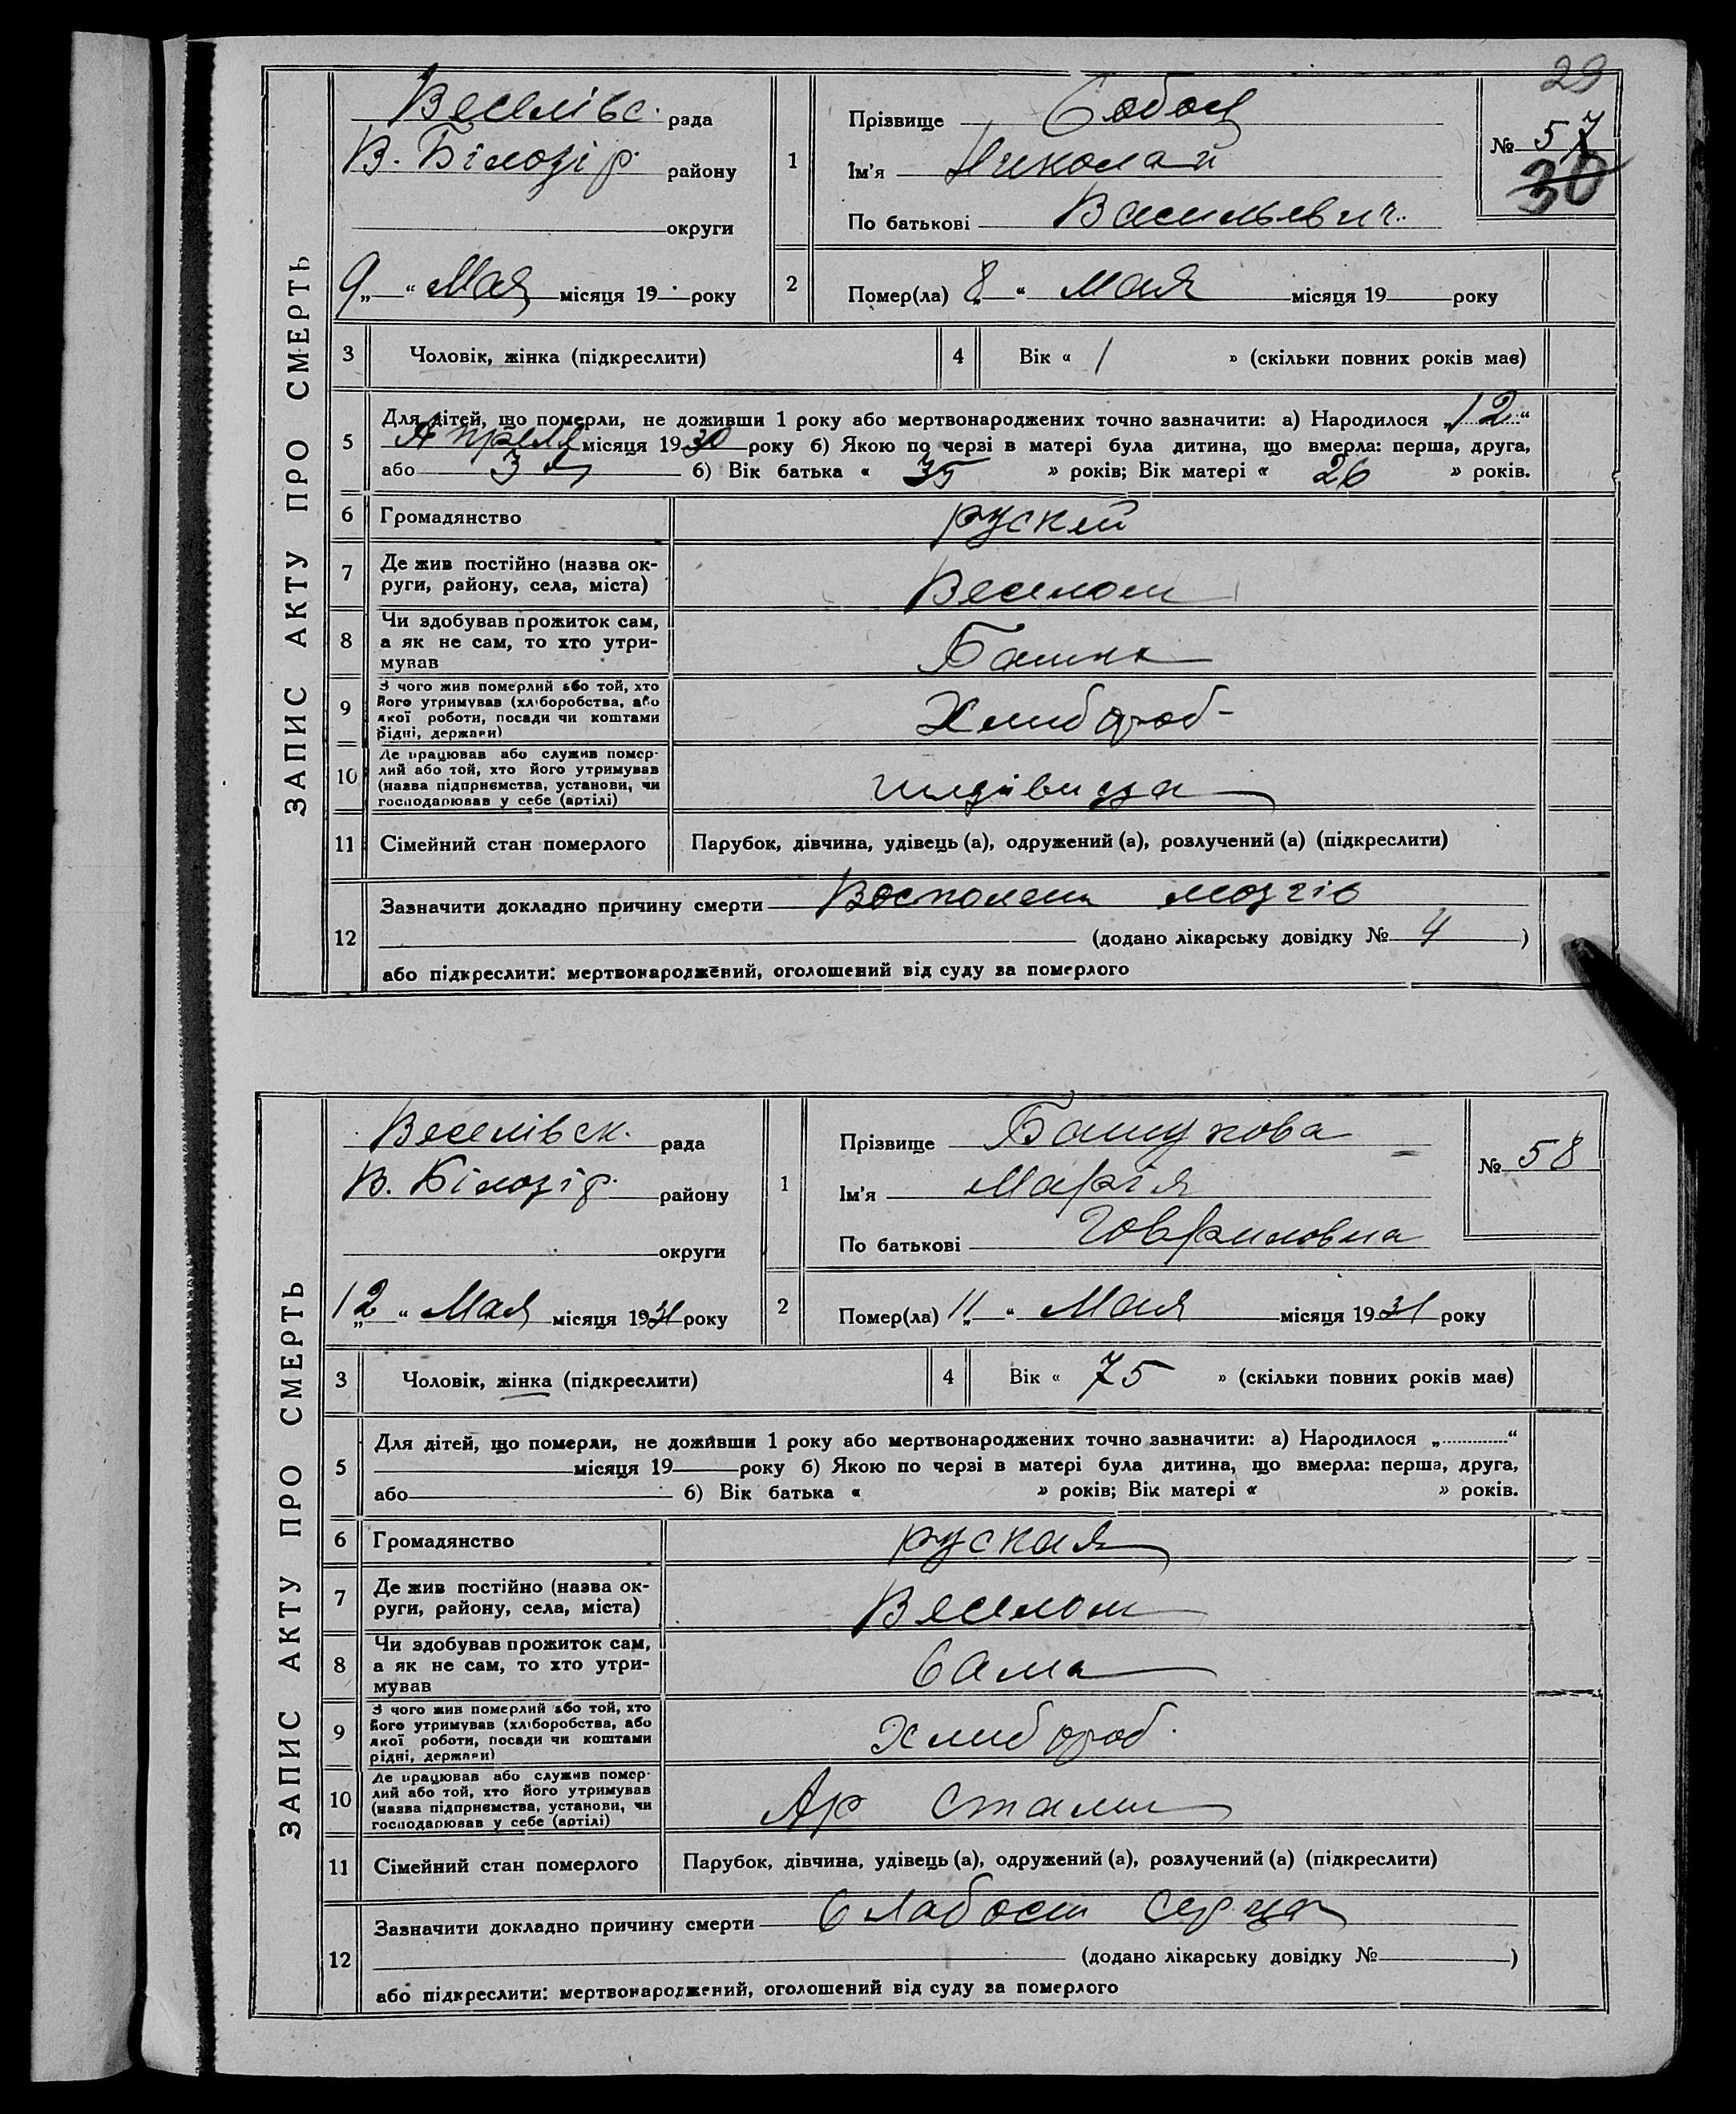 29
ЗАПИС АКТУ ПРО СМЕРТЬ
Веселівс. рада
В. Білозір. району
округи
„9“ Мая місяця 19 року
1
Прізвище
Ім'я Николай
По батькові Васильевич.
№ 57
30
2
Помер(ла) „8“ мая місяця 19 року
3
Чоловік, жінка (підкреслити)
4
Вік « 1 » (скільки повних років має)
5
Для дітей, що померли, не доживши 1 року або мертвонароджених точно зазначити: а) Народилося „12“
Апреля місяця 1930 року б) Якою по черзі в матері була дитина, що вмерла: перша, друга,
або 3 б) Вік батька « 35 » років; Вік матері « 26 » років.
6
Громадянство
руский
7
Де жив постійно (назва ок-
руги, району, села, міста)
Веселом
8
Чи здобував прожиток сам,
а як не сам, то хто утри-
мував
9
З чого жив померлий або той, хто
його утримував (хліборобства, або
якої роботи, посади чи коштами
рідні, держави)
Хлибороб-
10
Де працював або служив помер-
лий або той, хто його утримував
(назва підприємства, установи, чи
господарював у себе (артілі)
11
Сімейний стан померлого
Парубок, дівчина, удівець (а), одружений (а), розлучений (а) (підкреслити)
12
Зазначити докладно причину смерти мозгів
(додано лікарську довідку № 4 )
або підкреслити: мертвонароджений, оголошений від суду за померлого
ЗАПИС АКТУ ПРО СМЕРТЬ
Веселівск. рада
В. Білозір. району
округи
„12“ Мая місяця 1931 року
1
Прізвище
Ім'я Марія
По батькові Говриловна
№ 58
2
Помер(ла) „11“ Мая місяця 1931 року
3
Чоловік, жінка (підкреслити)
4
Вік « 75 » (скільки повних років має)
5
Для дітей, що померли, не доживши 1 року або мертвонароджених точно зазначити: а) Народилося „ “
місяця 19 року б) Якою по черзі в матері була дитина, що вмерла: перша, друга,
або б) Вік батька « » років; Вік матері « » років.
6
Громадянство
руская
7
Де жив постійно (назва ок-
руги, району, села, міста)
Веселом
8
Чи здобував прожиток сам,
а як не сам, то хто утри-
мував
Сама
9
З чого жив померлий або той, хто
його утримував (хліборобства, або
якої роботи, посади чи коштами
рідні, держави)
Хлибороб.
10
Де працював або служив помер-
лий або той, хто його утримував
(назва підприємства, установи, чи
господарював у себе (артілі)
Ар Сталин
11
Сімейний стан померлого
Парубок, дівчина, удівець (а), одружений (а), розлучений (а) (підкреслити)
12
Зазначити докладно причину смерти Слабост Серца
(додано лікарську довідку № )
або підкреслити: мертвонароджений, оголошений від суду за померлого